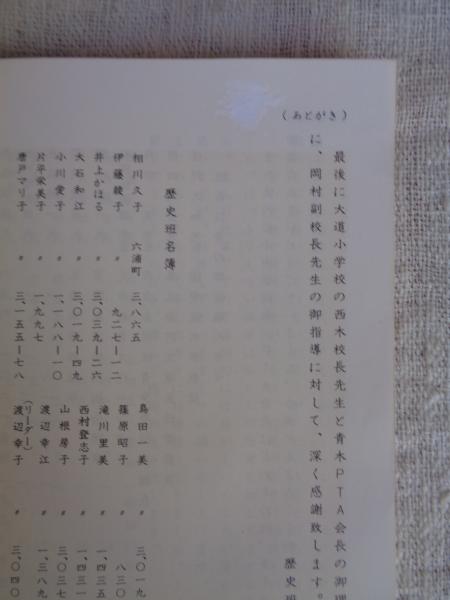 (あとがき)
最後に大道小学校の西木校長先生と青木PTA会長の御理
に、岡村副校長先生の御指導に対して、深く感謝致します。
歴史班
歴史班名簿
相川久子 六浦町 三、八六五
伊藤綾子 〃 九二七ー一二
井上かほる 〃 三、〇三九ー二六
大石和江 〃 三、〇一九ー四九
小川愛子 〃 一、一八八ー一〇
片平栄美子 〃 一、九九七
唐戸マリ子 〃 三、一五五ー七八
島田一美 〃 三、〇一九
篠原昭子 〃 八三〇
滝川里美 〃 一、四三五
西村登志子 〃 一、四三一
山根房子 〃 三、〇三七
渡辺幸江 〃 一、三八九
(リーダー)
渡辺幸子 〃 三、〇四〇